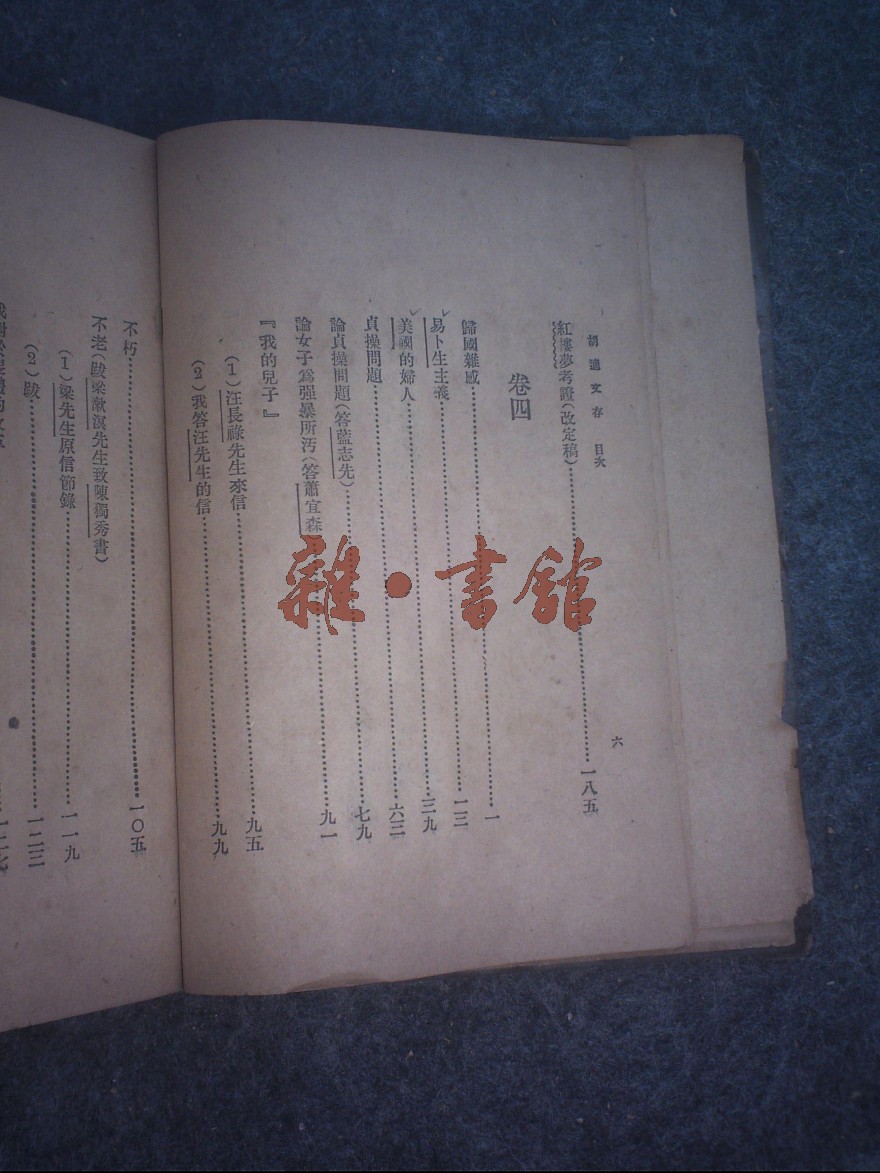 胡適文存 目次
六
紅樓夢考證(改定稿)……一八五
卷四
歸國雜感……一
易卜生主義……一三
美國的婦人……三九
貞操問題……六三
論貞操問題(答藍志先)……七九
論女子爲强暴所汚(答蕭宜森……九一
『我的兒子』
(1)汪長祿先生來信……九五
(2)我答汪先生的信……九九
不朽……一〇五
不老(跋梁漱溟先生致陳獨秀書)
(1)梁先生原信節錄……一一九
(2)跋……一二三
雜·書館